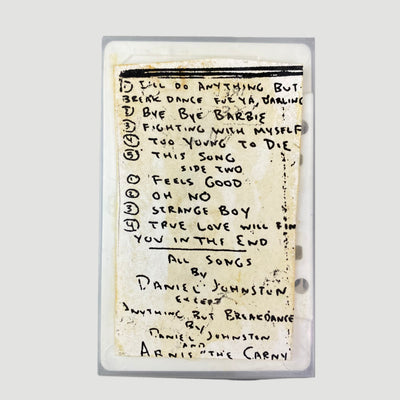 ① I'LL DO ANYTHING BUT
BREAK DANCE FUR YA, DARLING
② BYE BYE BARBIE
③ FIGHTING WITH MYSELF
④ TOO YOUNG TO DIE
⑤ THIS SONG
SIDE TWO
① FEELS GOOD
② OH NO
③ STRANGE BOY
④ TRUE LOVE WILL FIN
YOU IN THE END
ALL SONGS
BY
DANIEL JOHNSTON
EXCEPT
ANYTHING BUT BREAKDANCE
BY
DANIEL JOHNSTON
AND
ARNIE "THE CARNY